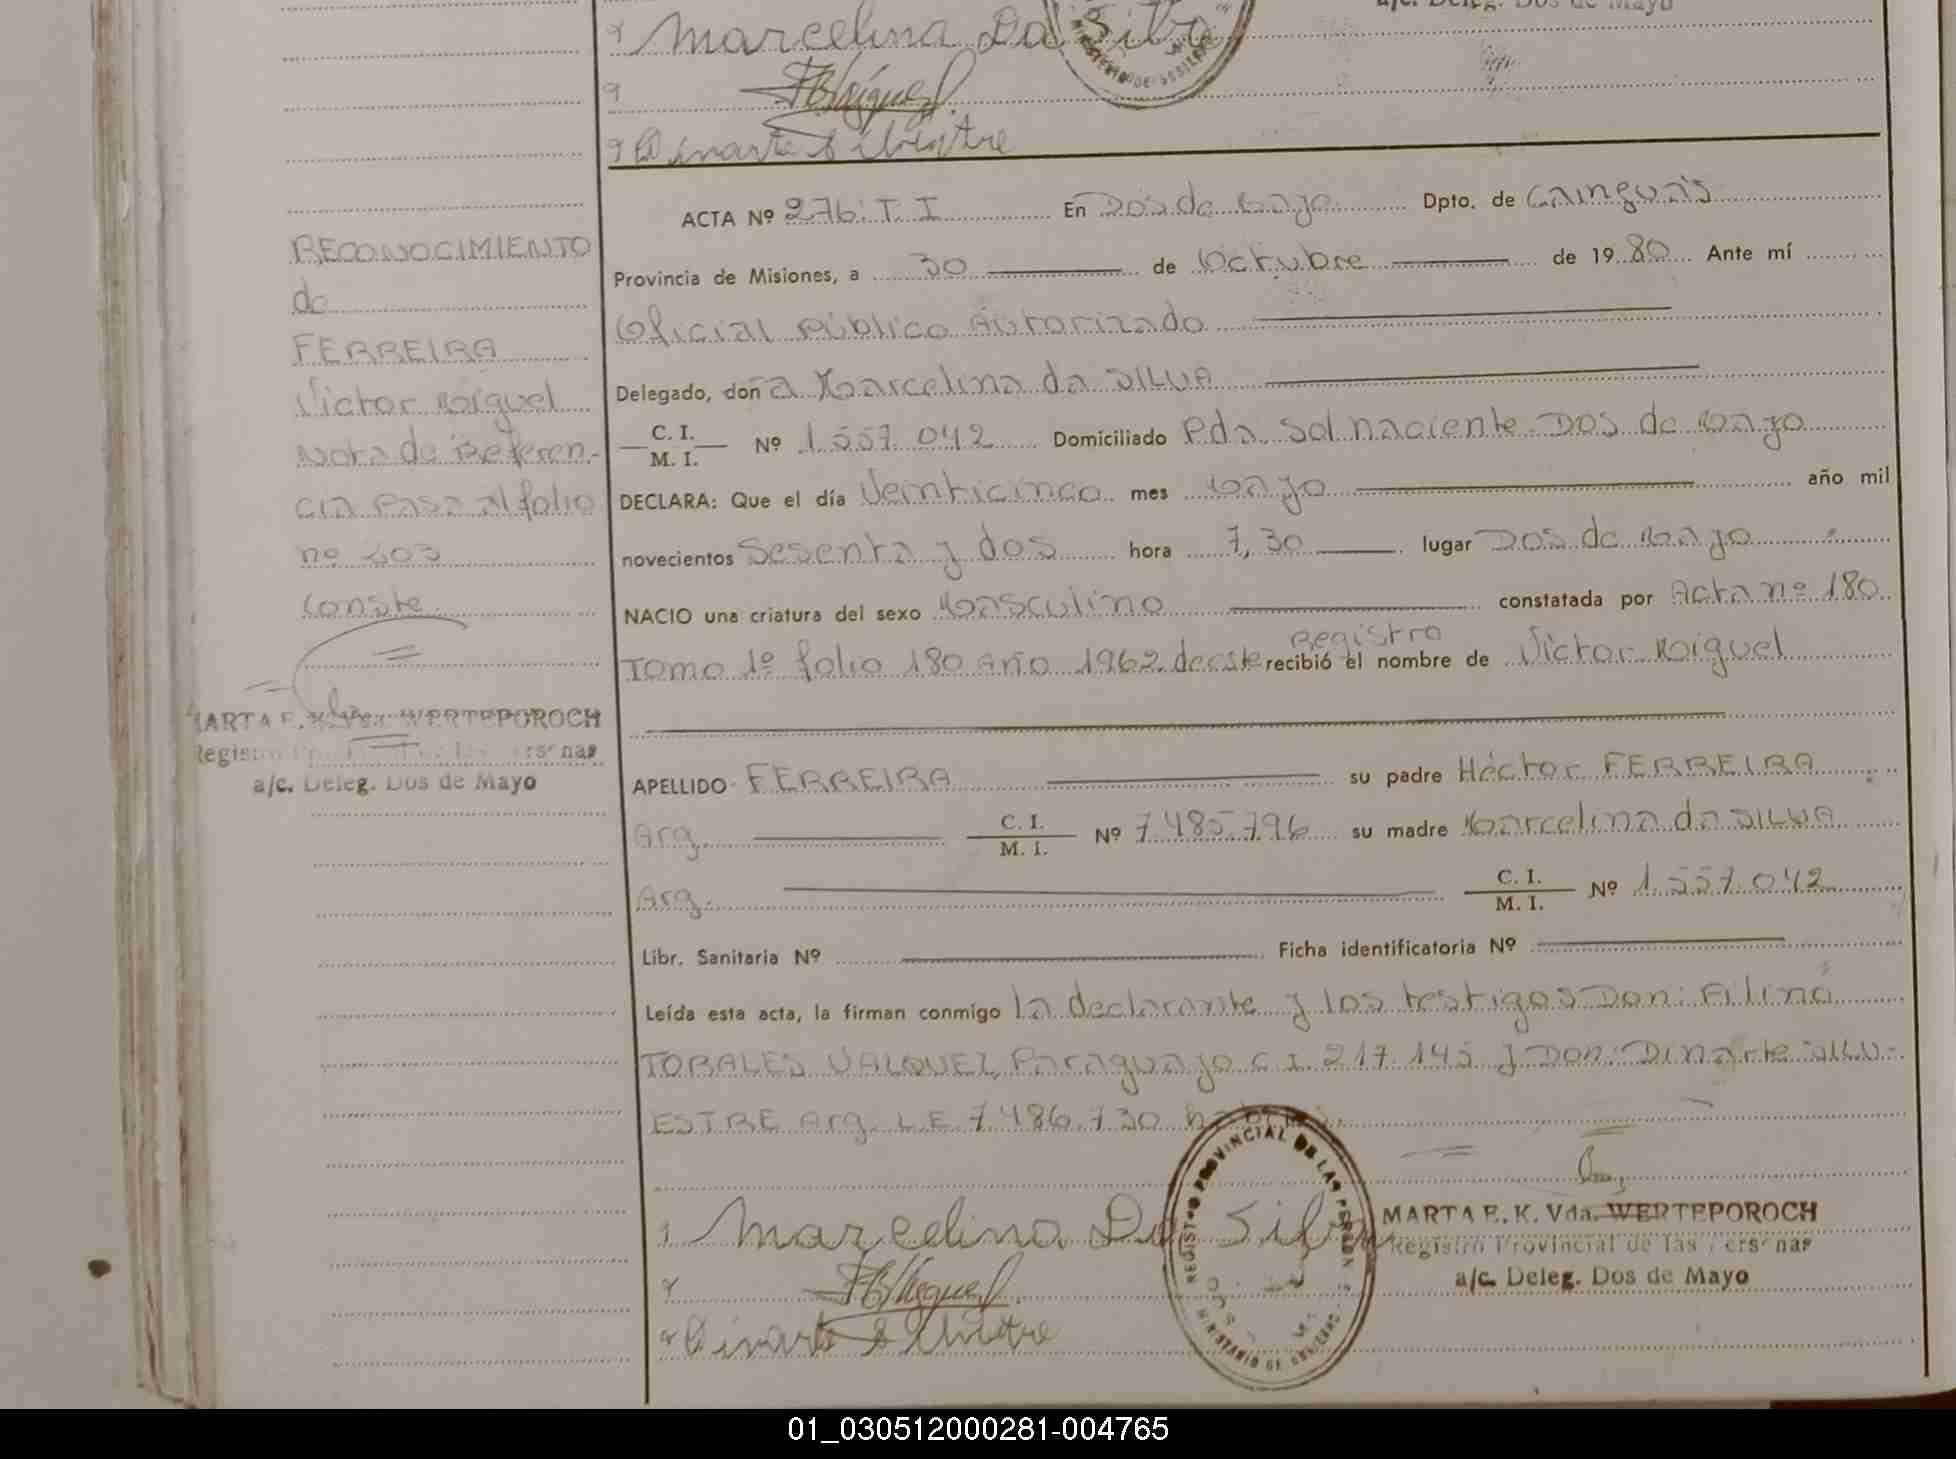 a/c. Deleg. Dos de Mayo
Marcelina Da Silva
Dinarte Silvestre
RECONOCIMIENTO
de
FERREIRA
Victor Miguel
Nota de Referen-
cia Pasa al folio
nº 203
Conste
MARTA E. K. Vda. WERTEPOROCH
Registro Provincial de las Personas
a/c. Deleg. Dos de Mayo
ACTA Nº 276. T. I En Dos de Mayo Dpto. de Cainguás
Provincia de Misiones, a 30 de Octubre de 1980 Ante mí
Oficial Público Autorizado
Delegado, doña Marcelina da SILVA
C. I.
M. I. Nº 1.557.042 Domiciliado Pda. Sol naciente. Dos de Mayo
DECLARA: Que el día Veinticinco mes Mayo año mil
novecientos Sesenta y dos hora 7,30 lugar Dos de Mayo
NACIO una criatura del sexo Masculino constatada por Acta nº 180
Registro
Tomo 1º folio 180 Año 1962 de este recibió el nombre de Victor Miguel
APELLIDO FERREIRA su padre Héctor FERREIRA
Arg. C. I.
M. I. Nº 7.485.796 su madre Marcelina da SILVA
Arg. C. I.
M. I. Nº 1.557.042
Libr. Sanitaria Nº Ficha identificatoria Nº
Leída esta acta, la firman conmigo la declarante y los testigos Don: Alino
TORALES VALQUEZ, Paraguayo C.I. 217.145 y Don: Dinarte SILV-
ESTRE Arg. L.E. 7.486.730
REGISTRO PROVINCIAL DE LAS PERSONAS
MINISTERIO DE GOBIERNO
Marcelina Da Silva
Dinarte Silvestre
MARTA E. K. Vda. WERTEPOROCH
Registro Provincial de las Personas
a/c. Deleg. Dos de Mayo
01_030512000281-004765